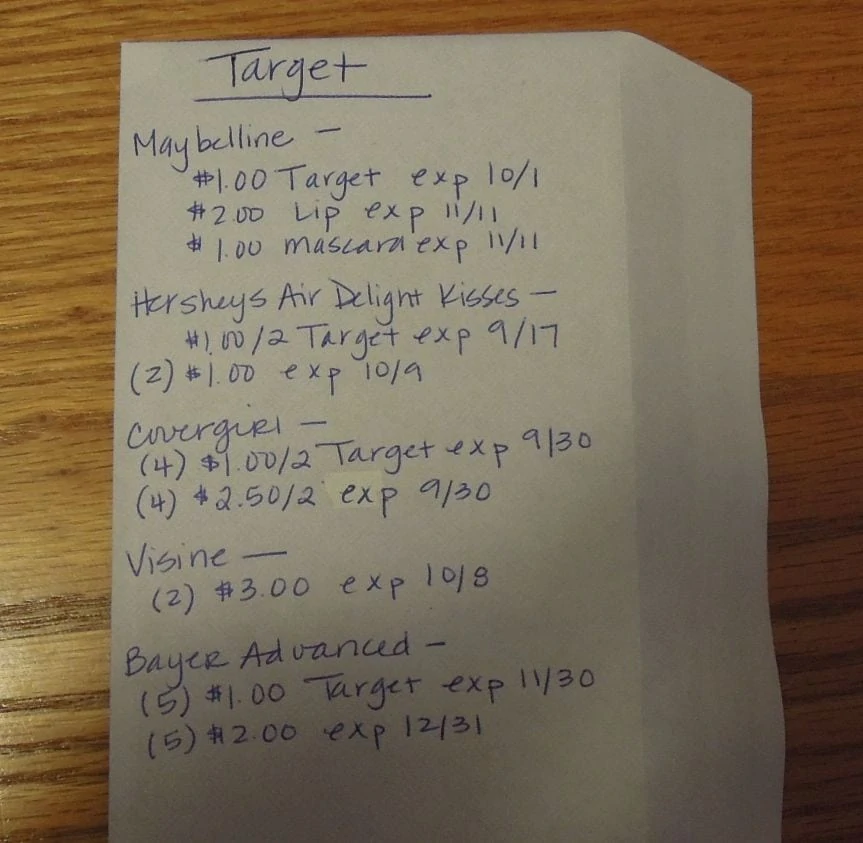 Target
Maybelline —
$1.00 Target exp 10/1
$2.00 Lip exp 11/11
$1.00 mascara exp 11/11
Hersheys Air Delight Kisses —
$1.00/2 Target exp 9/17
(2) $1.00 exp 10/9
Covergirl —
(4) $1.00/2 Target exp 9/30
(4) $2.50/2 exp 9/30
Visine —
(2) $3.00 exp 10/8
Bayer Advanced —
(5) $1.00 Target exp 11/30
(5) $2.00 exp 12/31